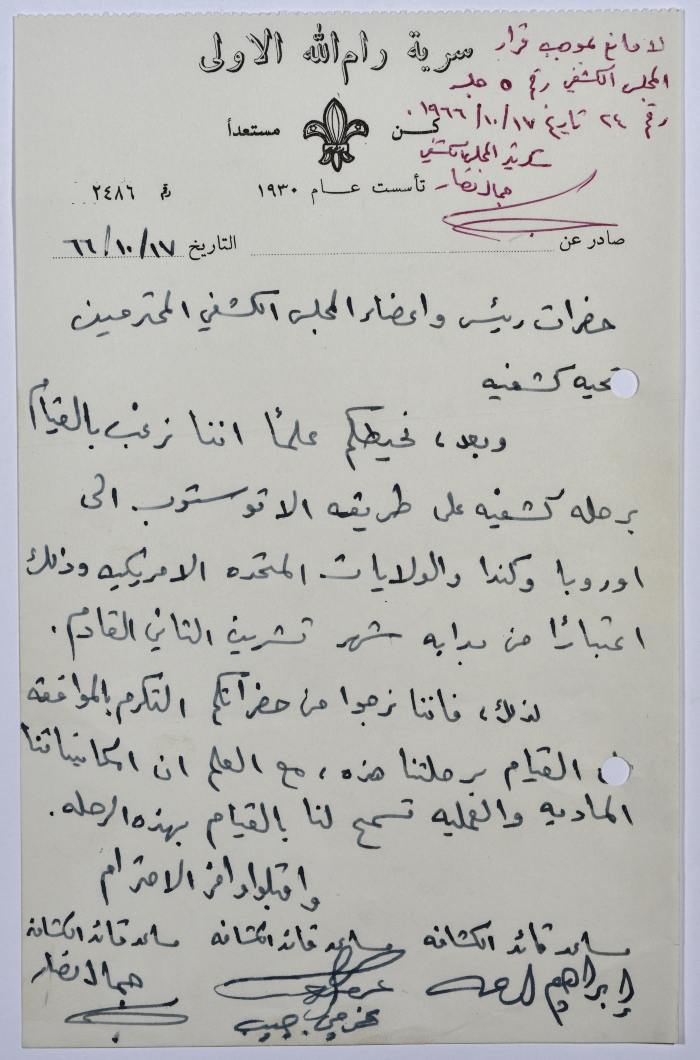 سرية رام الله الاولى
لا مانع بموجب قرار
المجلس الكشفي رقم ٥ جلسه
رقم ٢٤ تاريخ ١٧/١٠/١٩٦٦.
سكرتير المجلس الكشفي
جمال نصار
كن مستعداً
تأسست عام ١٩٣٠
رقم ٢٤٨٦
صادر عن
التاريخ ١٧/١٠/٦٦
حضرات رئيس واعضاء المجلس الكشفي المحترمين
تحيه كشفيه
وبعد، نحيطكم علمًا اننا نرغب بالقيام
برحله كشفيه على طريقه الاتوستوب الى
اوروبا وكندا والولايات المتحده الامريكيه وذلك
اعتبارًا من بدايه شهر تشرين الثاني القادم.
لذلك، فاننا نرجوا من حضراتكم التكرم بالموافقه
القيام برحلتنا هذه، مع العلم ان امكانياتنا
الماديه والعمليه تسمح لنا بالقيام بهذه الرحله.
واقبلوا وافر الاحترام
مساعد قائد الكشافه
مساعد قائد الكشافه
مساعد قائد الكشافة
إبراهيم
جمال نصار